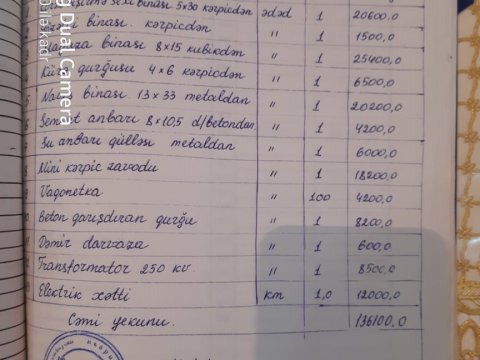 binası 5x30 kərpicdən ədəd 1 20600,0
binası. kərpicdən " 1 1500,0
binası 8x15 kubikdən " 1 25400,0
Kürə qurğusu 4x6 kərpicdən " 1 6500,0
binası 13x33 metaldan " 1 20200,0
6 Sement anbarı 8x10,5 d/betondan " 1 4200,0
Su anbarı qülləsi metaldan " 1 6000,0
8 Mini kərpic zavodu " 1 18200,0
9 Vaqonetka " 100 4200,0
10 Beton qarışdıran qurğu " 1 8200,0
11 Dəmir darvaza " 1 600,0
Transformator 250 kv " 1 8500,0
Elektrik xətti km 1,0 12000,0
Cəmi yekunu. 136100,0
Dual Camera